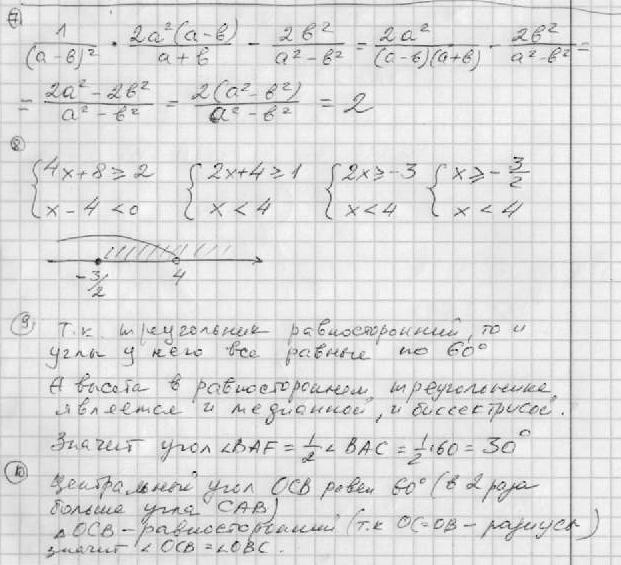 7) 1/(a-в)² · 2a²(a-в)/(a+в) - 2в²/(a²-в²) = 2a²/((a-в)(a+в)) - 2в²/(a²-в²) =
= (2a²-2в²)/(a²-в²) = 2(a²-в²)/(a²-в²) = 2
8)
{4x+8≥2 {2x+4≥1 {2x≥-3 {x≥-3/2
{x-4<0 {x<4 {x<4 {x<4
-3/2 4
9) Т.к. треугольник равносторонний, то и
углы у него все равные по 60°
А высота в равностороннем треугольнике,
является и медианной, и биссектрисой.
Значит угол ∠BAF = 1/2 ∠BAC = 1/2·60 = 30°
10) Центральный угол OCB равен 60° (в 2 раза
больше угла CAB)
△OCB - равносторонний (т.к OC=OB - радиусы)
значит ∠OCB = ∠OBC.